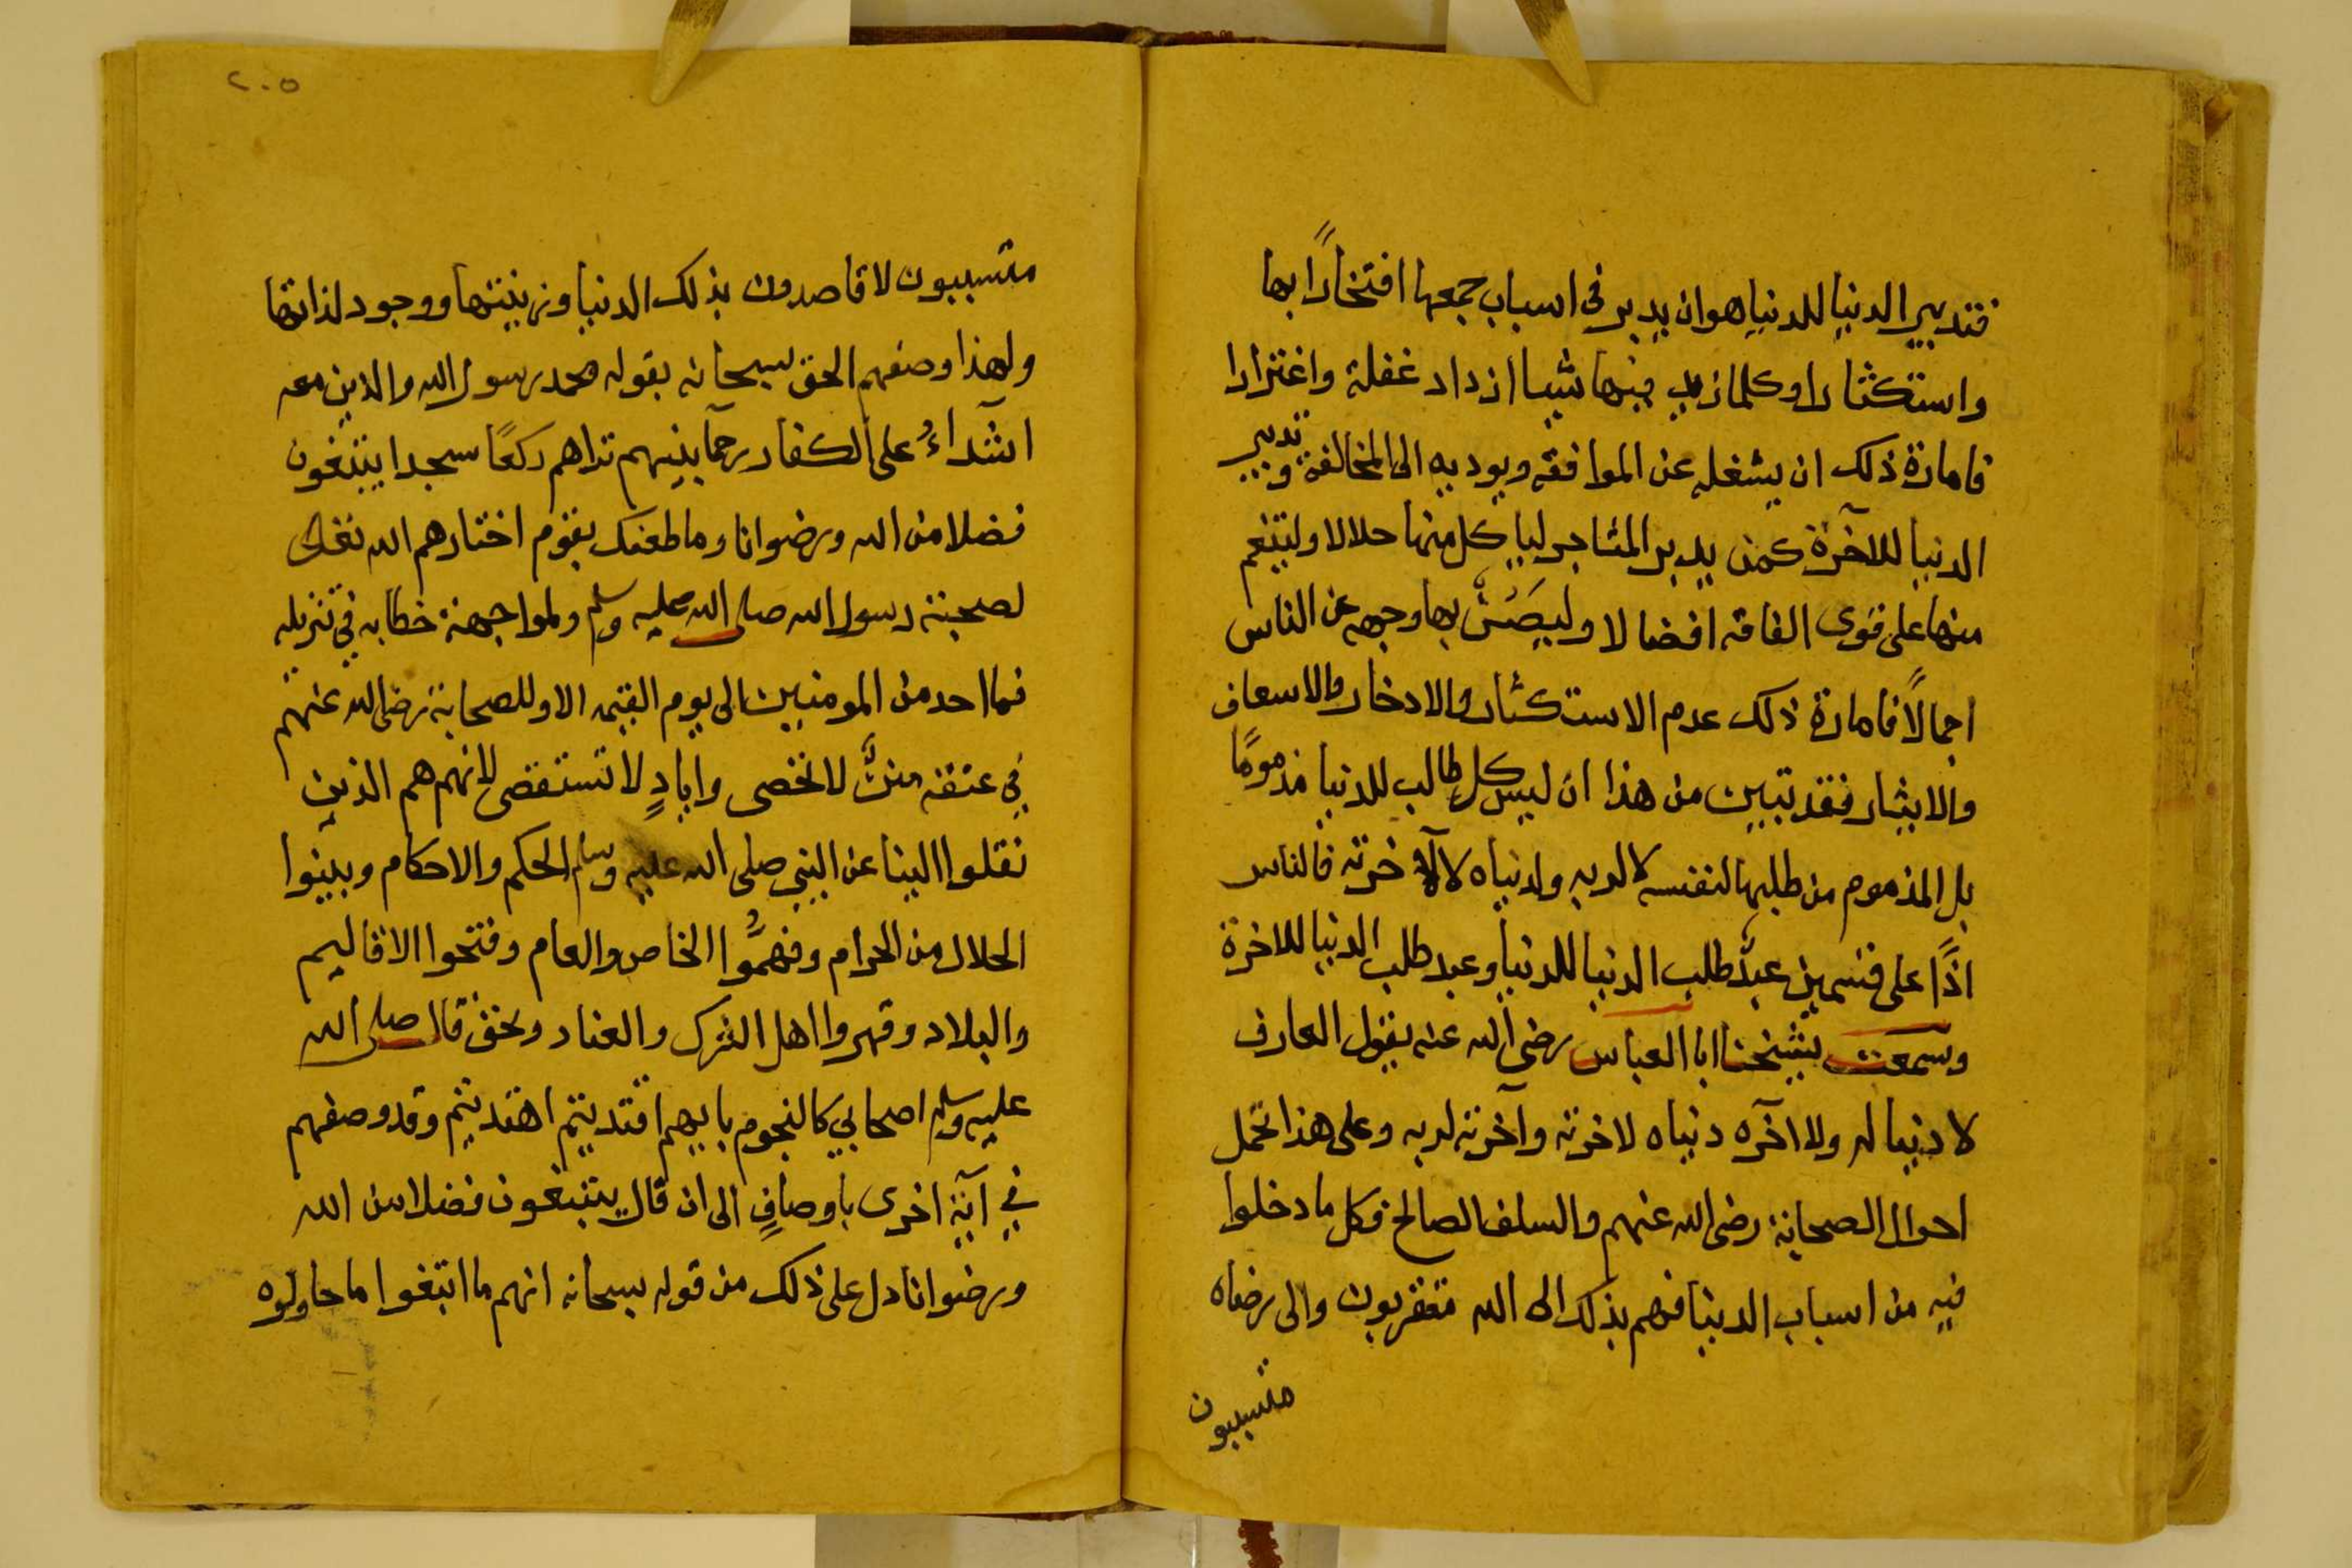 فتدبير الدنيا للدنيا هو ان يدبر فى اسباب جمعها افتخارًا بها
واستكثارا وكلما زيد فيها شيا ازداد غفلة واغترارا
فامارة ذلك ان يشغله عن الموافقه ويوديه الى المخالفة وتدبير
الدنيا للاخرة كمن يدبر المتاجر لياكل منها حلالا ولينعم
منها على ذوى الفاقه افضالا وليصُنَّ بها وجهه عن الناس
اجمالًا فامارة ذلك عدم الاستكثار والادخار والاسعاف
والايثار فقد تبين من هذا ان ليس كل طالب للدنيا مذمومًا
بل المذموم من طلبها لنفسه لا لربه ولدنياه لا لآخرته فالناس
اذًا على قسمين عبدٌ طلب الدنيا للدنيا وعبد طلب الدنيا للاخرة
وسمعت شيخنا ابا العباس رضى الله عنه يقول العارف
لا دنيا له ولا آخره دنياه لاخرته وآخرته لربه وعلى هذا تحمل
احوال الصحابة رضى الله عنهم والسلف الصالح فكل ما دخلوا
فيه من اسباب الدنيا فهم بذلك الى الله متقربون والى رضاه
متسببون
٢٠٥
متسببون لا قاصدون بذلك الدنيا وزينتها ووجود لذاتها
ولهذا وصفهم الحق سبحانه بقوله محمد رسول الله والذين معه
اشدآءُ على الكفار رحمآ بينهم تراهم ركعًا سجدا يبتغون
فضلا من الله ورضوانا وما طعنك بقوم اختارهم الله تعالى
لصحبة رسول الله صلى الله عليه وسلم ولمواجهة خطابه في تنزيله
فما احد من المومنين الى يوم القيمه الا وللصحابة رضى الله عنهم
في عنقه مننٌ لا تحصى وايادٍ لا تستقصى لانهم هم الذين
نقلوا الينا عن النبي صلى الله عليه وسلم الحكم والاحكام وبينوا
الحلال من الحرام وفهمُّوا الخاص والعام وفتحوا الاقاليم
والبلاد وقهروا اهل الشرك والعناد وبحق قال صلى الله
عليه وسلم اصحابي كالنجوم بايهم اقتديتم اهتديتم وقد وصفهم
في آية اخرى باوصافٍ الى ان قال يبتغون فضلا من الله
ورضوانا دل على ذلك من قوله سبحانه انهم ما ابتغوا ما حاولوه